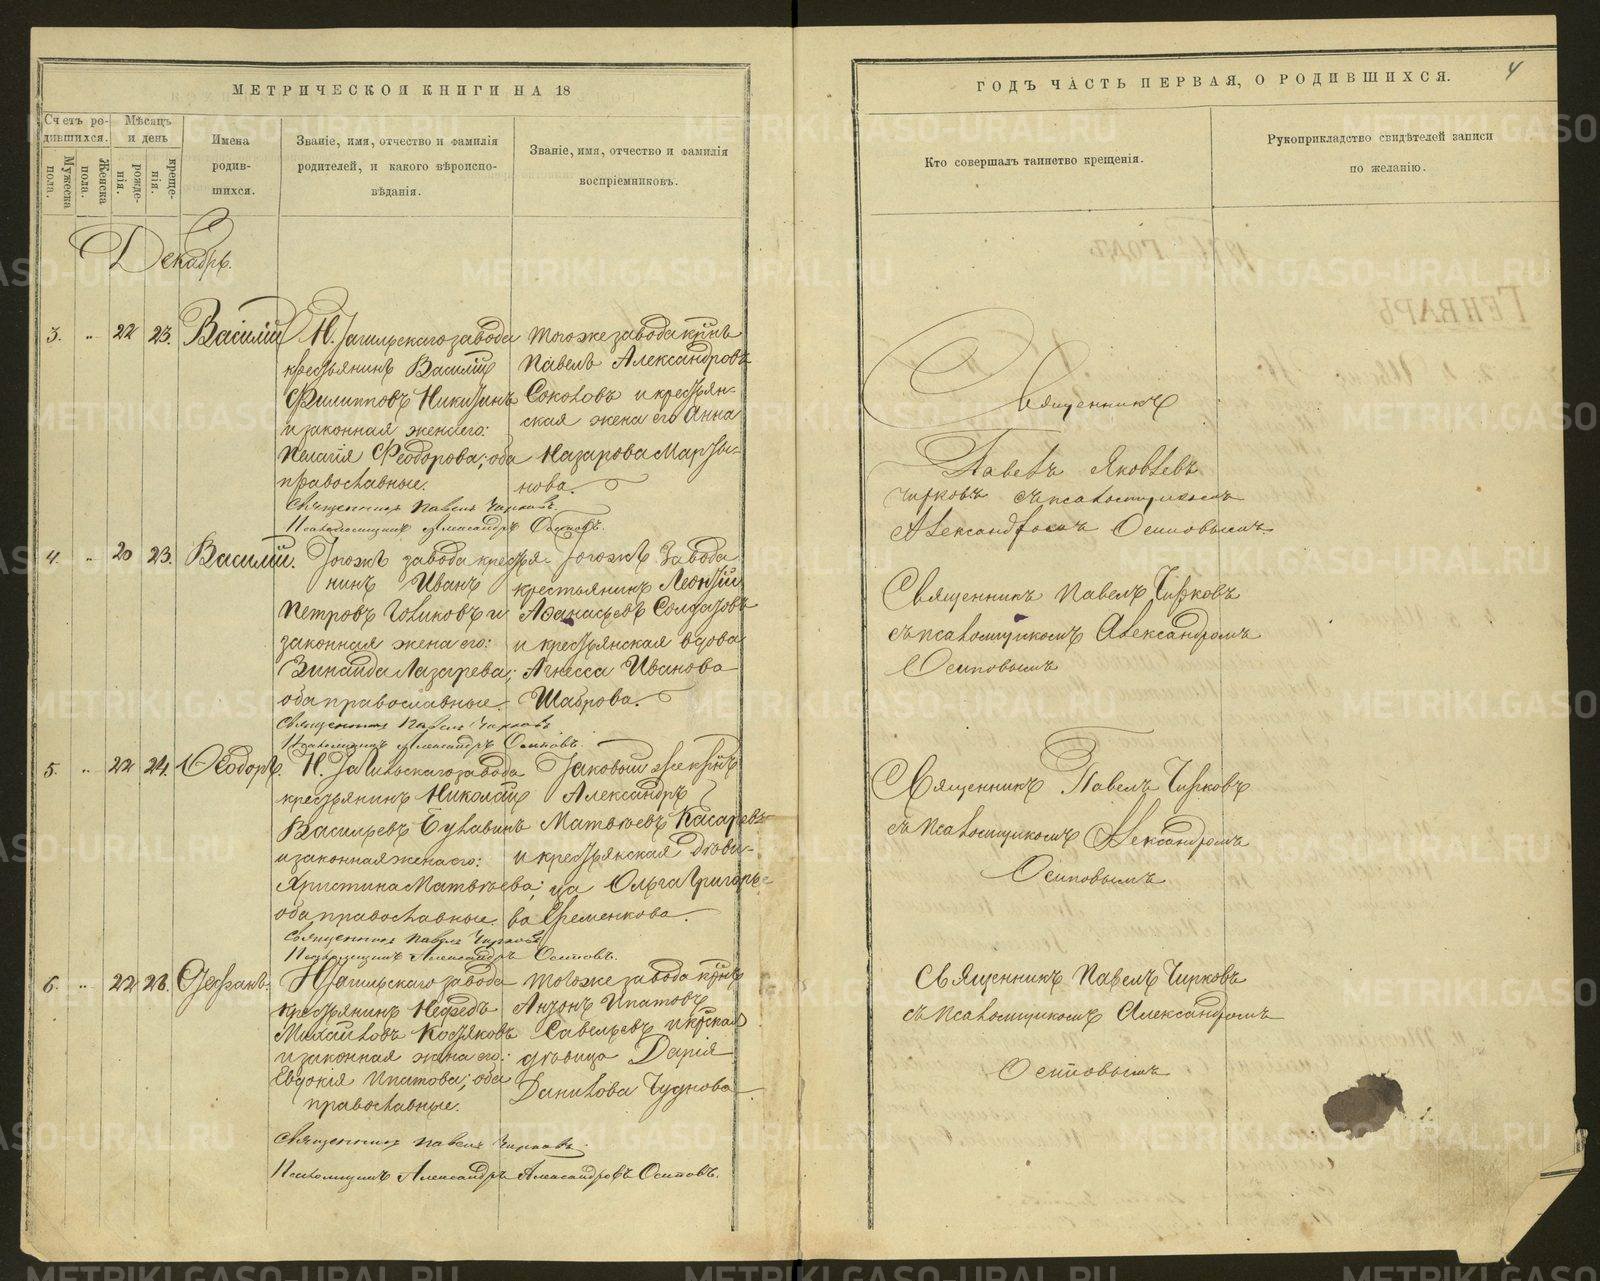 МЕТРИЧЕСКОЙ КНИГИ НА 18
ГОДЪ ЧАСТЬ ПЕРВАЯ, О РОДИВШИХСЯ.
4
Счетъ ро-
дившихся.
Мужеска
пола.
Женска
пола.
Мѣсяцъ
и день
рожде-
нія.
креще-
нія.
Имена
родив-
шихся.
Званіе, имя, отчество и фамилія
родителей, и какого вѣроиспо-
вѣданія.
Званіе, имя, отчество и фамилія
воспріемниковъ.
Кто совершалъ таинство крещенія.
Рукоприкладство свидѣтелей записи
по желанію.
Декабрь.
3. „ 22 23. Василій
Н. Тагильскаго завода
крестьянинъ Василій
Филипповъ Никитинъ
и законная жена его:
Пелагія Феодорова; оба
православные.
тогоже завода крнъ
Павелъ Александровъ
Соколовъ и крестьян-
ская жена его Анна
Назарова Марты-
нова.
Священникъ
Павелъ Яковлевъ
Чирковъ съ псаломщикомъ
Александромъ Осиповымъ.
Священникъ Павелъ Чирковъ.
Псаломщикъ Александръ Осиповъ.
4. „ 20 23. Василій.
Тогожъ завода крестья-
нинъ Иванъ
Петровъ Голиковъ и
законная жена его:
Зинаида Лазарева;
оба православные.
Тогожъ завода
крестьянинъ Леонтій
Афанасьевъ Солдатовъ
и крестьянская вдова
Агнесса Иванова
Шаврова.
Священникъ Павелъ Чирковъ
съ псаломщикомъ Александромъ
Осиповымъ
Священникъ Павелъ Чирковъ.
Псаломщикъ Александръ Осиповъ.
5. „ 22 24. Ѳеодоръ.
Н. Тагильскаго завода
крестьянинъ Николай
Васильевъ Булавинъ
и законная жена его:
Христина Матвѣева;
оба православные.
Таковый же крнъ
Александръ
Матвѣевъ Касаревъ
и крестьянская дѣви-
ца Ольга Григорье-
ва Еременкова.
Священникъ Павелъ Чирковъ
съ псаломщикомъ Александромъ
Осиповымъ
Священникъ Павелъ Чирковъ
Псаломщикъ Александръ Осиповъ.
6. „ 22 28. Стефанъ.
Н Тагильскаго завода
крестьянинъ Нефедъ
Михайловъ Костяковъ
и законная жена его:
Евдокія Ипатова; оба
православные.
тогоже завода крнъ
Антонъ Ипатовъ
Савельевъ и крская
дѣвица Дарія
Данилова Чуднова.
Священникъ Павелъ Чирковъ
съ псаломщикомъ Александромъ
Осиповымъ
Священникъ Павелъ Чирковъ.
Псаломщикъ Александръ Александровъ Осиповъ.
METRIKI.GASO-URAL.RU